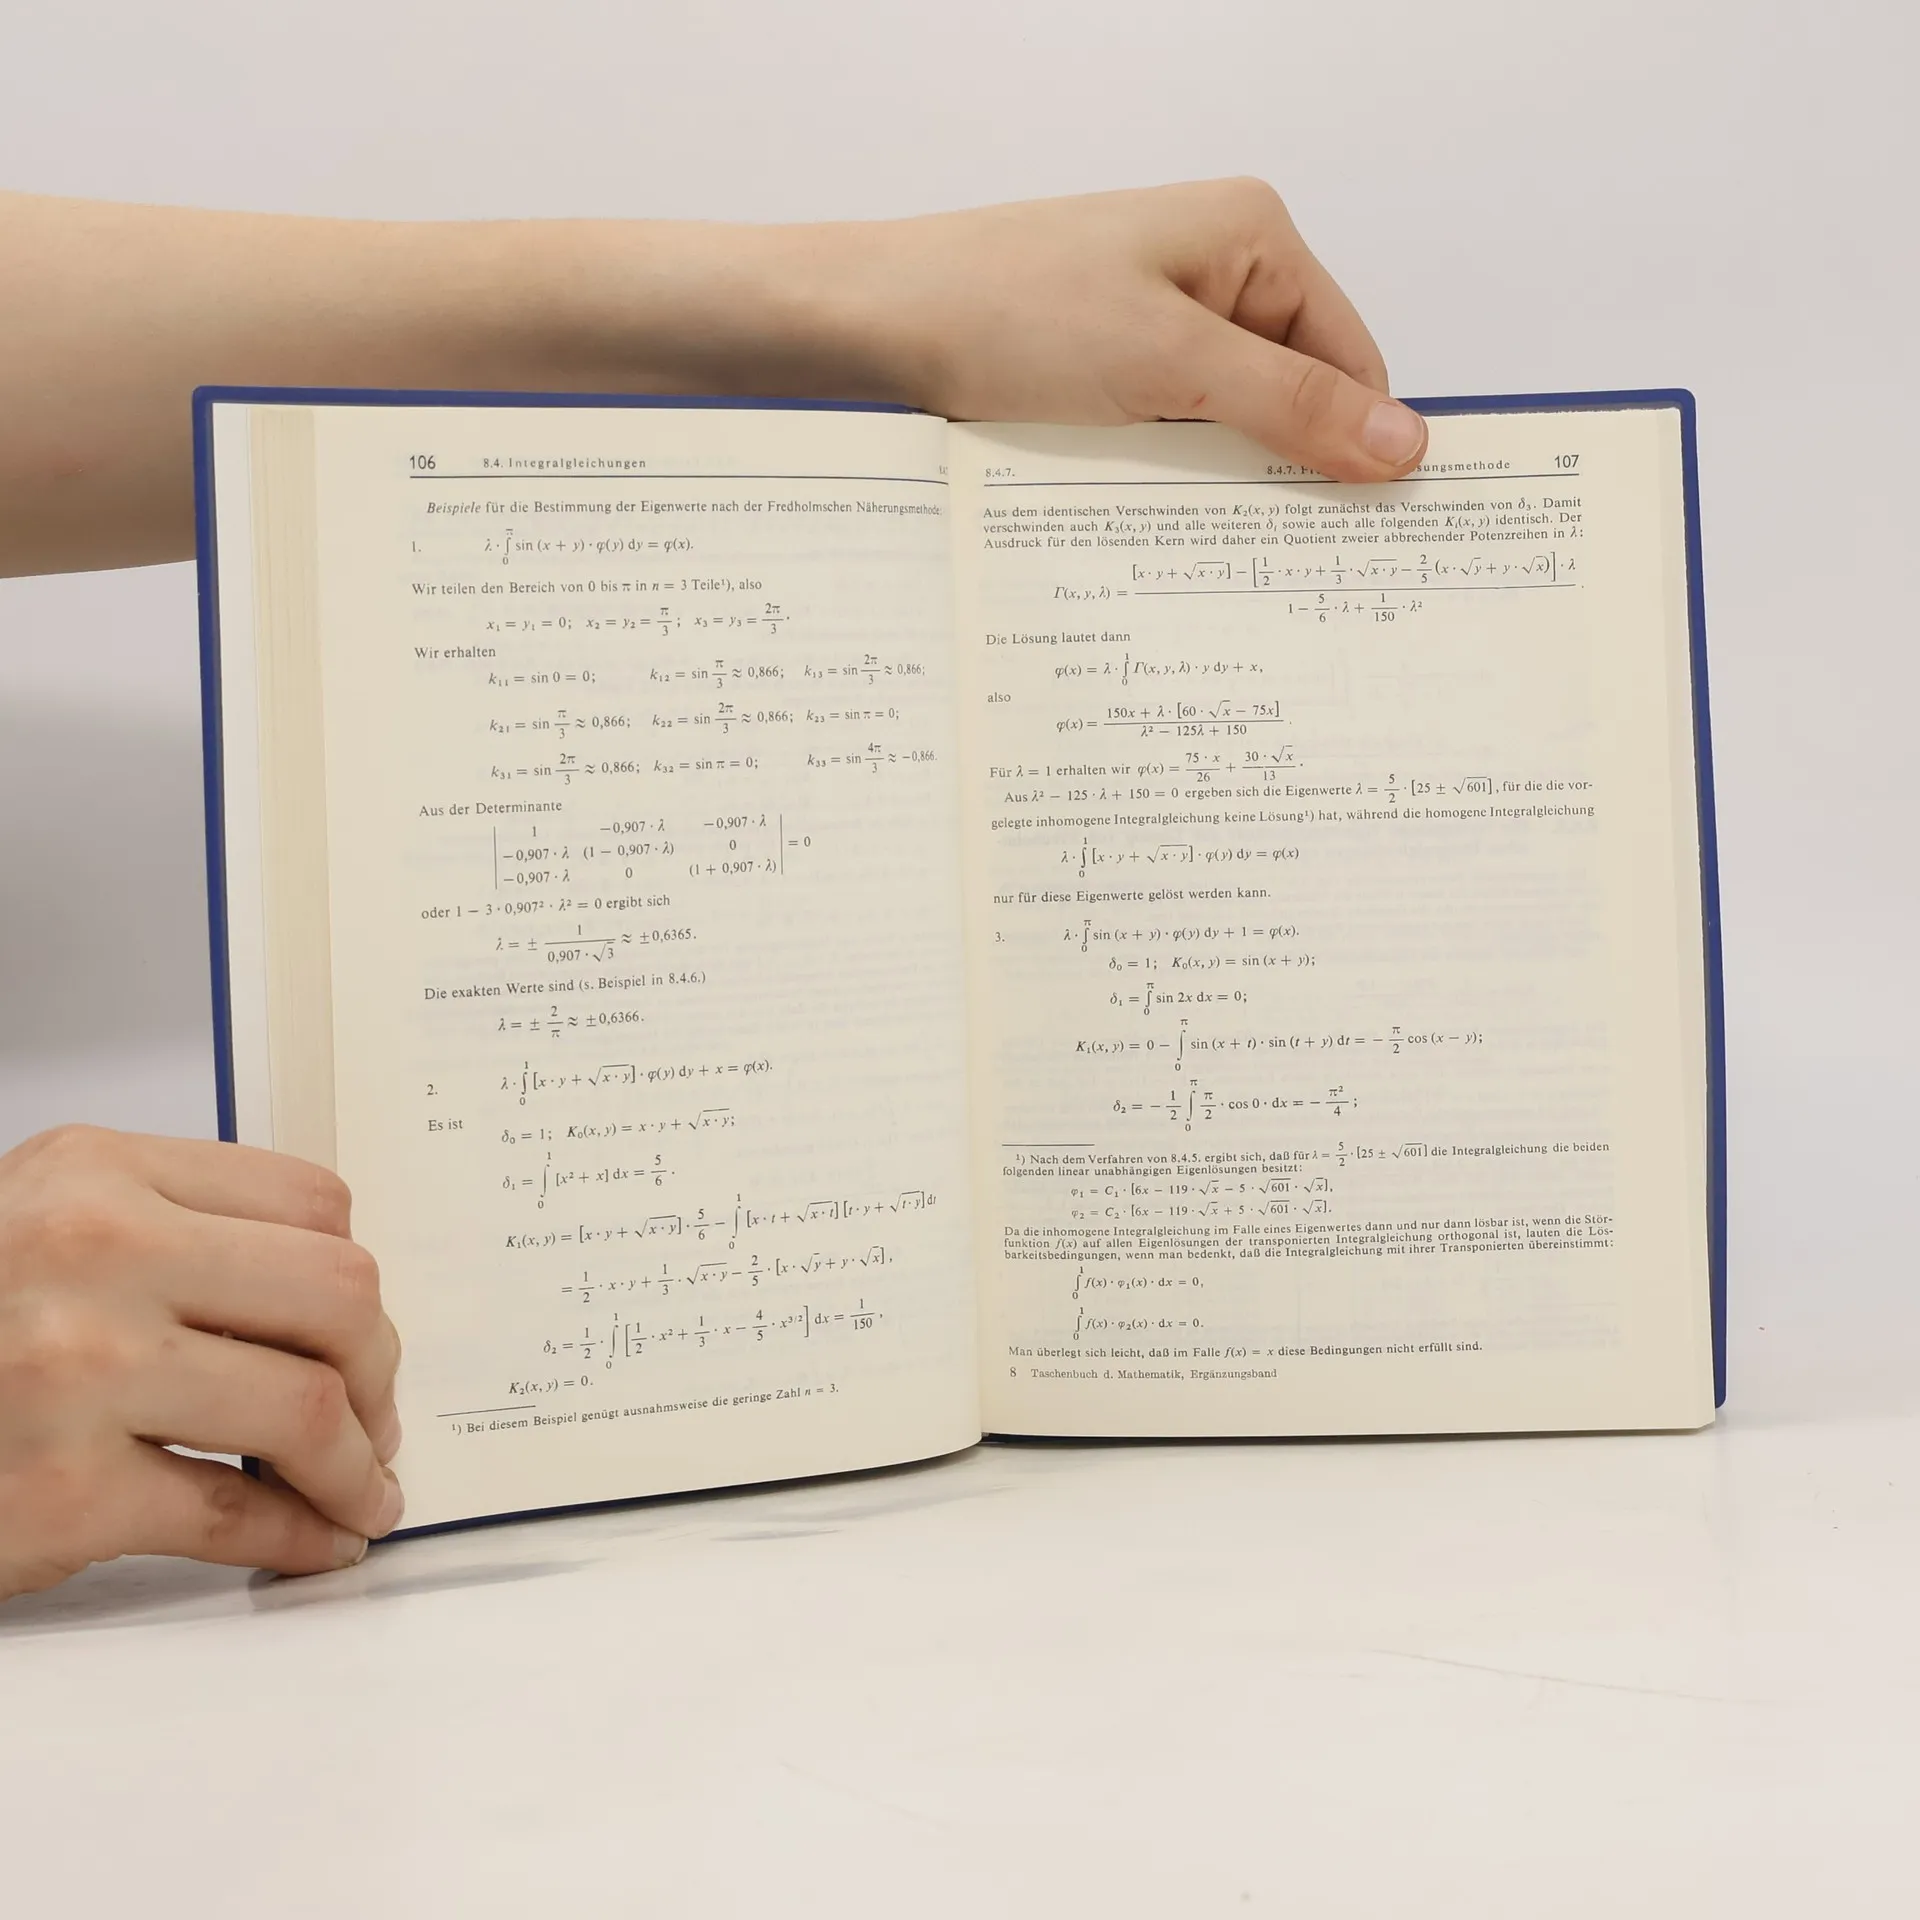 106 8.4. Integralgleichungen
Beispiele für die Bestimmung der Eigenwerte nach der Fredholmschen Näherungsmethode:
1. λ · ∫₀^π sin (x + y) · φ(y) dy = φ(x).
Wir teilen den Bereich von 0 bis π in n = 3 Teile¹), also
x₁ = y₁ = 0; x₂ = y₂ = π/3; x₃ = y₃ = 2π/3.
Wir erhalten
k₁₁ = sin 0 = 0; k₁₂ = sin π/3 ≈ 0,866; k₁₃ = sin 2π/3 ≈ 0,866;
k₂₁ = sin π/3 ≈ 0,866; k₂₂ = sin 2π/3 ≈ 0,866; k₂₃ = sin π = 0;
k₃₁ = sin 2π/3 ≈ 0,866; k₃₂ = sin π = 0; k₃₃ = sin 4π/3 ≈ −0,866.
Aus der Determinante
| 1 −0,907 · λ −0,907 · λ |
| −0,907 · λ (1 − 0,907 · λ) 0 | = 0
| −0,907 · λ 0 (1 + 0,907 · λ) |
oder 1 − 3 · 0,907² · λ² = 0 ergibt sich
λ = ± 1/(0,907 · √3) ≈ ±0,6365.
Die exakten Werte sind (s. Beispiel in 8.4.6.)
λ = ± 2/π ≈ ±0,6366.
2. λ · ∫₀¹ [x · y + √(x · y)] · φ(y) dy + x = φ(x).
Es ist
δ₀ = 1; K₀(x, y) = x · y + √(x · y);
δ₁ = ∫₀¹ [x² + x] dx = 5/6.
K₁(x, y) = [x · y + √(x · y)] · 5/6 − ∫₀¹ [x · t + √(x · t)] [t · y + √(t · y)] dt
= 1/2 · x · y + 1/3 · √(x · y) − 2/5 · [x · √y + y · √x],
δ₂ = 1/2 · ∫₀¹ [1/2 · x² + 1/3 · x − 4/5 · x^(3/2)] dx = 1/150,
K₂(x, y) = 0.
¹) Bei diesem Beispiel genügt ausnahmsweise die geringe Zahl n = 3.
8.4.7. 8.4.7. sungsmethode 107
Aus dem identischen Verschwinden von K₂(x, y) folgt zunächst das Verschwinden von δ₃. Damit
verschwinden auch K₃(x, y) und alle weiteren δᵢ sowie auch alle folgenden Kᵢ(x, y) identisch. Der
Ausdruck für den lösenden Kern wird daher ein Quotient zweier abbrechender Potenzreihen in λ:
Γ(x, y, λ) = ([x · y + √(x · y)] − [1/2 · x · y + 1/3 · √(x · y) − 2/5 (x · √y + y · √x)] · λ)/(1 − 5/6 · λ + 1/150 · λ²).
Die Lösung lautet dann
φ(x) = λ · ∫₀¹ Γ(x, y, λ) · y dy + x,
also
φ(x) = (150x + λ · [60 · √x − 75x])/(λ² − 125λ + 150).
Für λ = 1 erhalten wir φ(x) = (75 · x)/26 + (30 · √x)/13.
Aus λ² − 125 · λ + 150 = 0 ergeben sich die Eigenwerte λ = 5/2 · [25 ± √601], für die die vor-
gelegte inhomogene Integralgleichung keine Lösung¹) hat, während die homogene Integralgleichung
λ · ∫₀¹ [x · y + √(x · y)] · φ(y) dy = φ(x)
nur für diese Eigenwerte gelöst werden kann.
3. λ · ∫₀^π sin (x + y) · φ(y) dy + 1 = φ(x).
δ₀ = 1; K₀(x, y) = sin (x + y);
δ₁ = ∫₀^π sin 2x dx = 0;
K₁(x, y) = 0 − ∫₀^π sin (x + t) · sin (t + y) dt = − π/2 cos (x − y);
δ₂ = − 1/2 ∫₀^π π/2 · cos 0 · dx = − π²/4;
¹) Nach dem Verfahren von 8.4.5. ergibt sich, daß für λ = 5/2 · [25 ± √601] die Integralgleichung die beiden
folgenden linear unabhängigen Eigenlösungen besitzt:
φ₁ = C₁ · [6x − 119 · √x − 5 · √601 · √x],
φ₂ = C₂ · [6x − 119 · √x + 5 · √601 · √x].
Da die inhomogene Integralgleichung im Falle eines Eigenwertes dann und nur dann lösbar ist, wenn die Stör-
funktion f(x) auf allen Eigenlösungen der transponierten Integralgleichung orthogonal ist, lauten die Lös-
barkeitsbedingungen, wenn man bedenkt, daß die Integralgleichung mit ihrer Transponierten übereinstimmt:
∫₀¹ f(x) · φ₁(x) · dx = 0,
∫₀¹ f(x) · φ₂(x) · dx = 0.
Man überlegt sich leicht, daß im Falle f(x) = x diese Bedingungen nicht erfüllt sind.
8 Taschenbuch d. Mathematik, Ergänzungsband